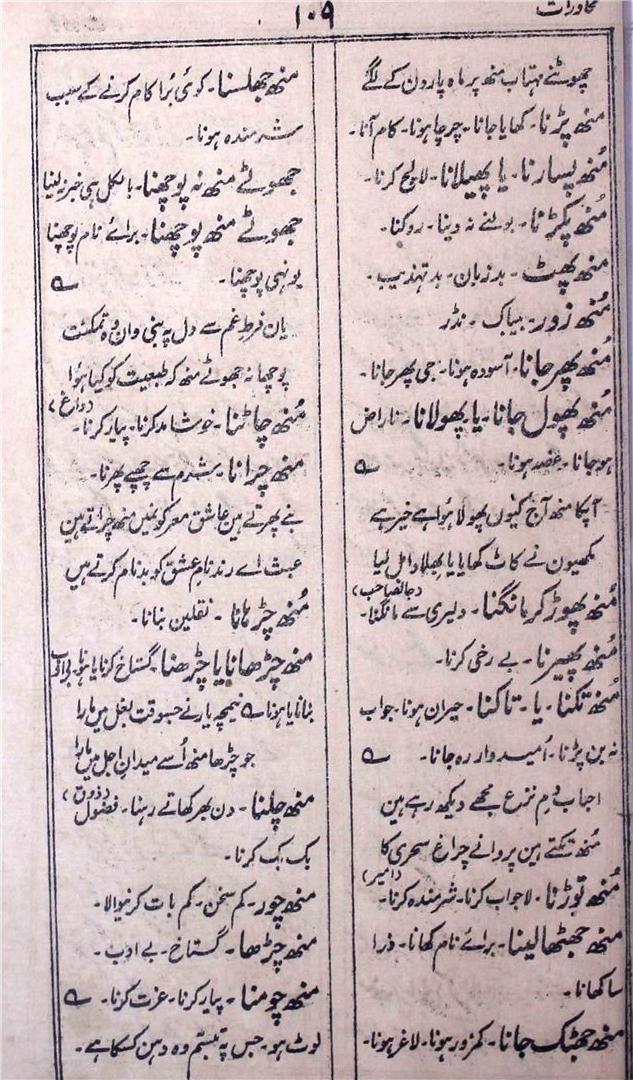 ۱۰۹
محاورات
چھوٹتے مہتاب منھ پر ماہ پارون کے لگے
منھ پڑنا۔ کھایا جانا۔ چرچا ہونا۔ کام آنا۔
مُنھ پسارنا۔ یا پھیلانا۔ لالچ کرنا۔
مُنھ پکڑنا۔ بولنے نہ دینا۔ روکنا۔
منھ پھٹ۔ بدزبان۔ بدتہذیب۔
مُنھ زور۔ بیباک۔ نڈر
مُنھ پھر جانا۔ آسودہ ہونا۔ جی پھر جانا۔
مُنھ پھول جانا۔ یا پھولانا۔ ناراض
ہو جانا۔ غصہ ہونا۔ ؎
آپکا منھ آج کیوں پھولا ہؤا ہے خیر ہے
مکھیون نے کاٹ کھایا یا بھلاوا مل لیا
(جانصاحب)
مُنھ پھوڑ کر مانگنا۔ دلیری سے مانگنا۔
مُنھ پھیرنا۔ بے رخی کرنا۔
مُنھ تکنا۔ یا۔ تاکنا۔ حیران ہونا۔ جواب
نہ بن پڑنا۔ اُمیدوار رہ جانا۔ ؎
احباب دمِ نزع مجھے دیکھ رہے ہین
مُنھ تکتے ہین پروانے چراغ سحری کا
(امیر)
مُنھ توڑنا۔ لاجواب کرنا۔ شرمندہ کرنا۔
منھ جھٹھا لینا۔ برائے نام کھانا۔ ذرا
سا کھانا۔
منھ جھٹک جانا۔ کمزور ہونا۔ لاغر ہونا۔
منھ جھلسنا۔ کوئی بُرا کام کرنے کے سبب
شرمندہ ہونا۔
جھوٹے منھ نہ پوچھنا۔ بالکل ہی خبر نہ لینا
جھوٹے منھ پوچھنا۔ برائے نام پوچھنا
یونہی پوچھنا۔ ؎
یان فرط غم سے دل پہ بنی وان وہ تمکنت
پوچھا نہ جھوٹے منھ کہ طبیعت کو کیا ہؤا
(داغ)
مُنھ چاٹنا۔ خوشامد کرنا۔ پیار کرنا۔
منھ چرانا۔ شرم سے چھپے پھرنا۔
بنے پھرتے ہین عاشق معرکوں میں منھ چراتے ہین
عبث اے رند نام عشق کو بدنام کرتے ہیں
مُنھ چڑہانا۔ نقلین بنانا۔
منھ چڑھانا یا چڑھنا۔ گستاخ کرنا یا ہونا۔ بے ادب
بنانا یا ہونا ؎ نیمچہ یار نے جسوقت بغل میں مارا
جو چڑھا منھ اُسے میدانِ اجل میں مارا
(ذوق)
منھ چلنا۔ دن بھر کھاتے رہنا۔ فضول
بک بک کرنا۔
منھ چور۔ کم سخن۔ کم بات کرنیوالا۔
منھ چڑھا۔ گستاخ۔ بے ادب۔
منھ چومنا۔ پیار کرنا۔ عزت کرنا۔ ؎
لوٹ ہو۔ جس پہ تبسّم وہ دہن کسکا ہے۔